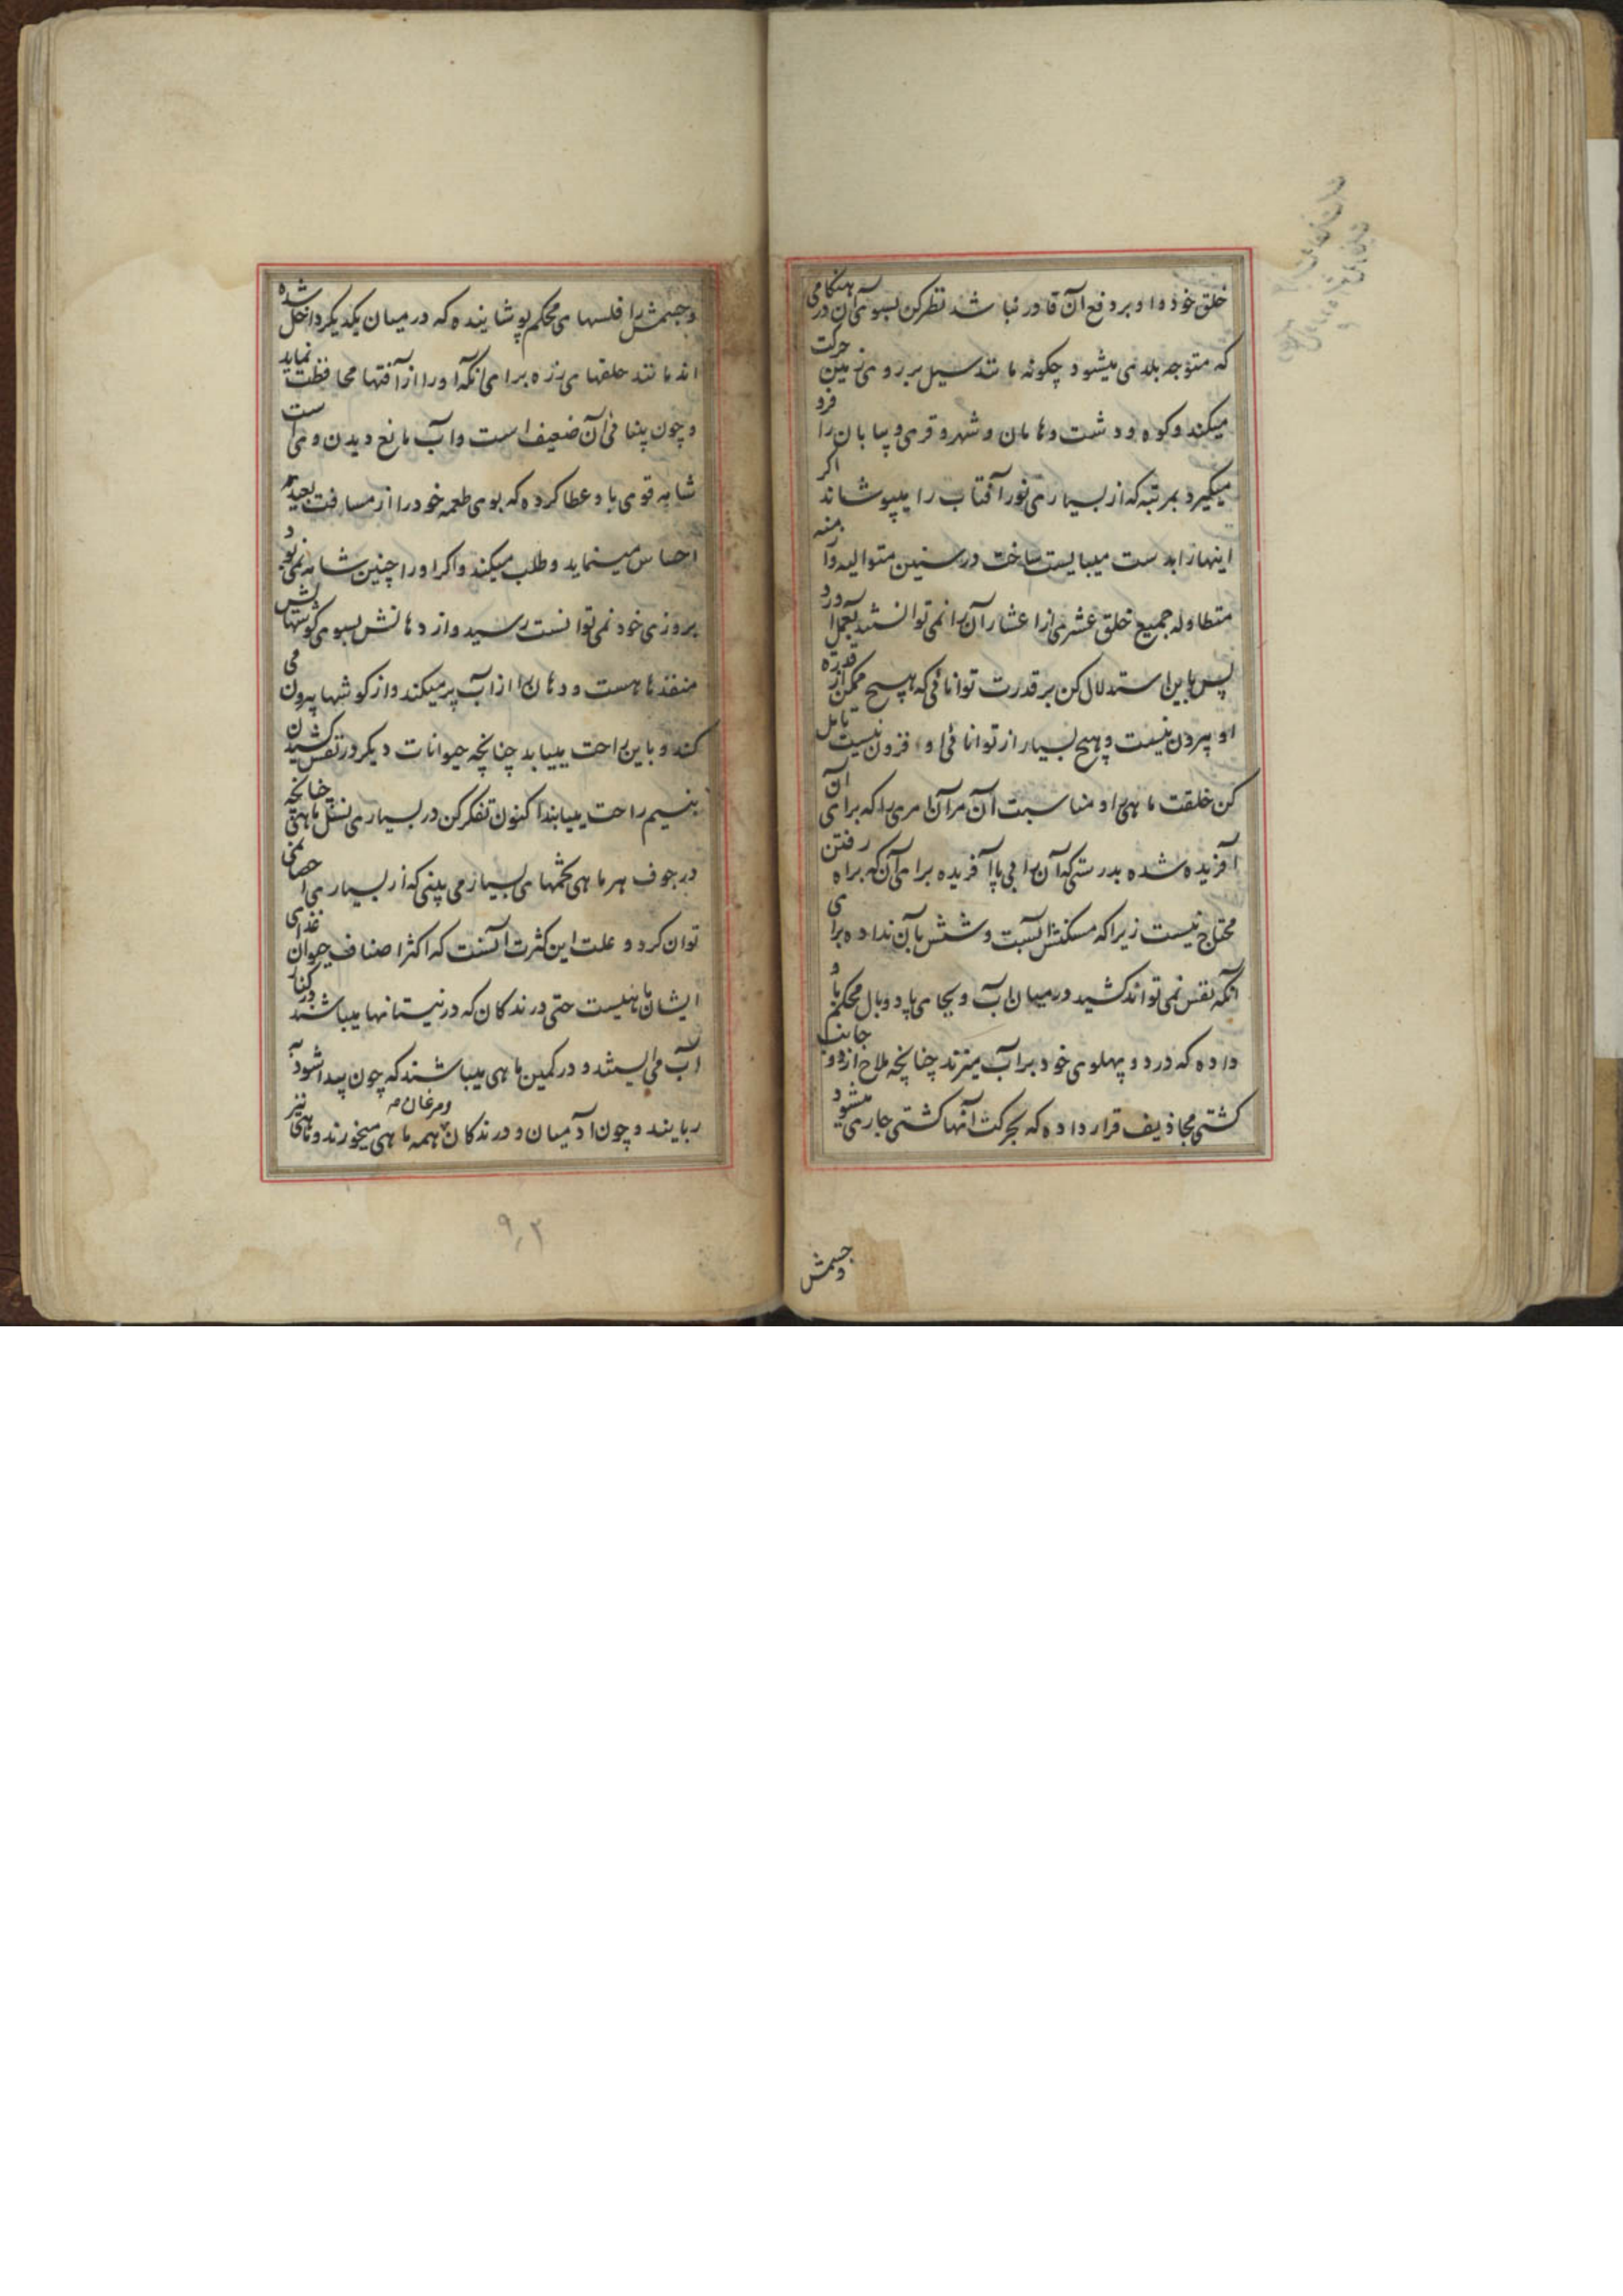 خلق خود دا و بر دفع آن قادر نباشد نظر کن بسوی آن در هنگامی
که متوجه بلدی میشود چگونه مانند سیل بر روی زمین حرکت
میکند و کوه و دشت و هامان و شهر و قری و بیابان را فرو
میگیرد بمرتبه که از بسیاری نور آفتاب را میپوشاند اگر
اینها را بدست میبایست ساخت در سنین متوالیه و ازمنه
متطاوله جمیع خلق عشری از اعشار آن را نمی توانستند بعمل آورد
پس باین استدلال کن بر قدرت توانائی که هیچ ممکن از قدرة
او بیرون نیست و هیچ بسیار از توانائی او فزون نیست تامل
کن خلقت ماهی را و مناسبت آن مر آن امری را که برای آن
آفریده شده بدرستی که آن را بی پا آفریده برای آن که براه رفتن
محتاج نیست زیرا که مسکنش آبست و شش بآن نداده برای
آنکه نفس نمی تواند کشید در میان آب و بجای پا دو بال محکم باو
داده که در دو پهلوی خود بر آب میزند چنانچه ملاح از دو جانب
کشتی مجاذیف قرار داده که بحرکت آنها کشتی جاری میشود
وجسمش
و جسمش را فلسهای محکم پوشاینده که در میان یکدیگر داخل شده
اند مانند حلقهای زره برای آنکه او را از آفتها محافظت نماید
و چون بینائی آن ضعیف است و آب مانع دیدن وی است
شامه قوی باو عطا کرده که بوی طعمه خود را از مسافت بعیده
احساس مینماید و طلب میکند و اگر او را چنین شامه نمی بود
بروزی خود نمی توانست رسید و از دهانش بسوی گوشهاش
منفذها هست و دهان را از آب پر میکند و از گوشها بیرون می
کند و باین راحت مییابد چنانچه حیوانات دیگر در نفس کشیدن
بنسیم راحت مییابند اکنون تفکر کن در بسیاری نسل ماهی چنانچه
در جوف هر ماهی تخمهای بسیار می بینی که از بسیاری احصا نمی
توان کرد و علت این کثرت آنست که اکثر اصناف حیوان غذای
ایشان ماهیست حتی درندگان که در نیستانها میباشند در کنار
آب می ایستند و در کمین ماهی میباشند که چون پیدا شود آن
ربایند و چون آدمیان و درندگان و مرغان همه ماهی میخورند و ماهی نیز
۹۲